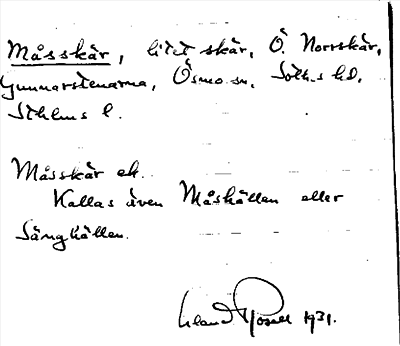 Måsskär, litet skär, Ö. Norrskär,
Gunnarstenarna, Ösmo sn, Soth.s hd,
Sthlms l.
Måsskär ek.
Kallas även Måshällen eller
Sänghällen.
1931.